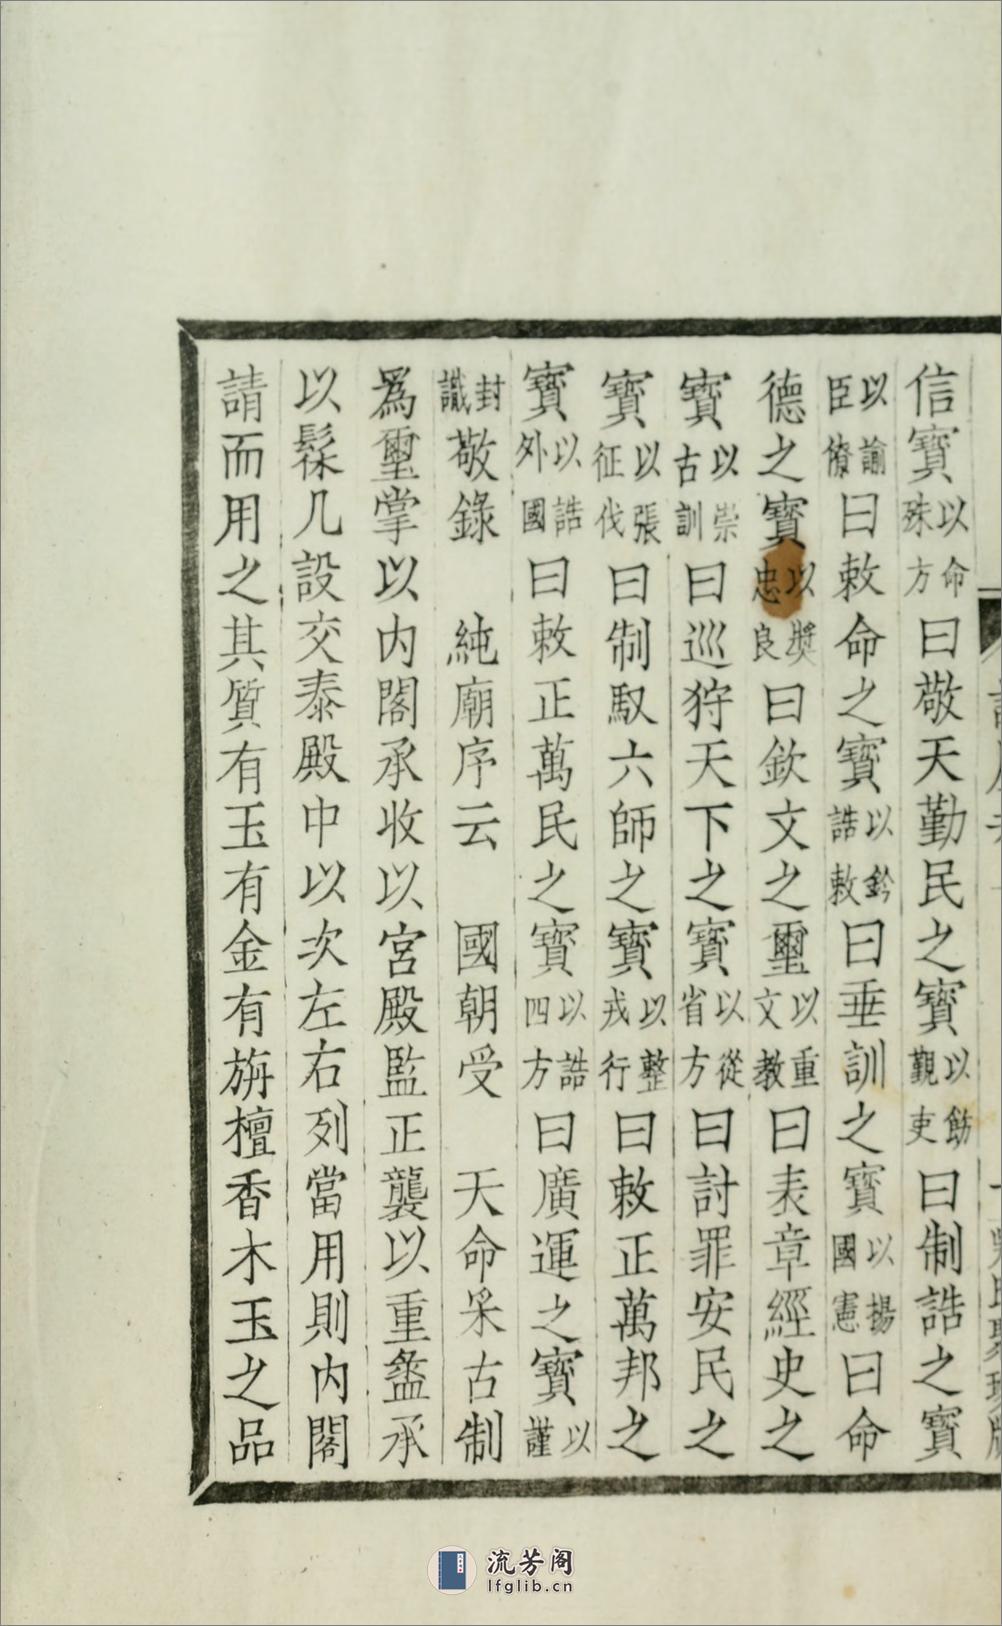 信寶以命殊方曰敬天勤民之寶以飭覲吏曰制誥之寶
以諭臣僚曰敕命之寶以鈐誥敕曰垂訓之寶以揚國憲曰命
德之寶以奬忠良曰欽文之璽以重文教曰表章經史之
寶以崇古訓曰巡狩天下之寶以從省方曰討罪安民之
寶以張征伐曰制馭六師之寶以整戎行曰敕正萬邦之
寶以誥外國曰敕正萬民之寶以誥四方曰廣運之寶以謹
封識敬錄 純廟序云 國朝受 天命采古制
爲璽掌以内閣承收以宮殿監正襲以重盝承
以髹几設交泰殿中以次左右列當用則内閣
請而用之其質有玉有金有旃檀香木玉之品
流芳阁
lfglib.cn